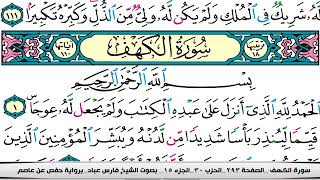 لَّهُۥ شَرِيكٌ فِى ٱلْمُلْكِ وَلَمْ يَكُن لَّهُۥ وَلِىٌّ مِّنَ ٱلذُّلِّ وَكَبِّرْهُ تَكْبِيرًۢا ١١١
ترتيبها ١٨ سُورَةُ الكَهْفِ آياتها ١١٠
بِسْمِ ٱللَّهِ ٱلرَّحْمَٰنِ ٱلرَّحِيمِ
ٱلْحَمْدُ لِلَّهِ ٱلَّذِىٓ أَنزَلَ عَلَىٰ عَبْدِهِ ٱلْكِتَٰبَ وَلَمْ يَجْعَل لَّهُۥ عِوَجَاۜ ١
قَيِّمًا لِّيُنذِرَ بَأْسًا شَدِيدًا مِّن لَّدُنْهُ وَيُبَشِّرَ ٱلْمُؤْمِنِينَ ٱلَّذِينَ
سورة الكهف _الصفحة ٢٩٣ _الحزب ٣٠ _الجزء ١٥ _ بصوت الشيخ فارس عباد_برواية حفص عن عاصم